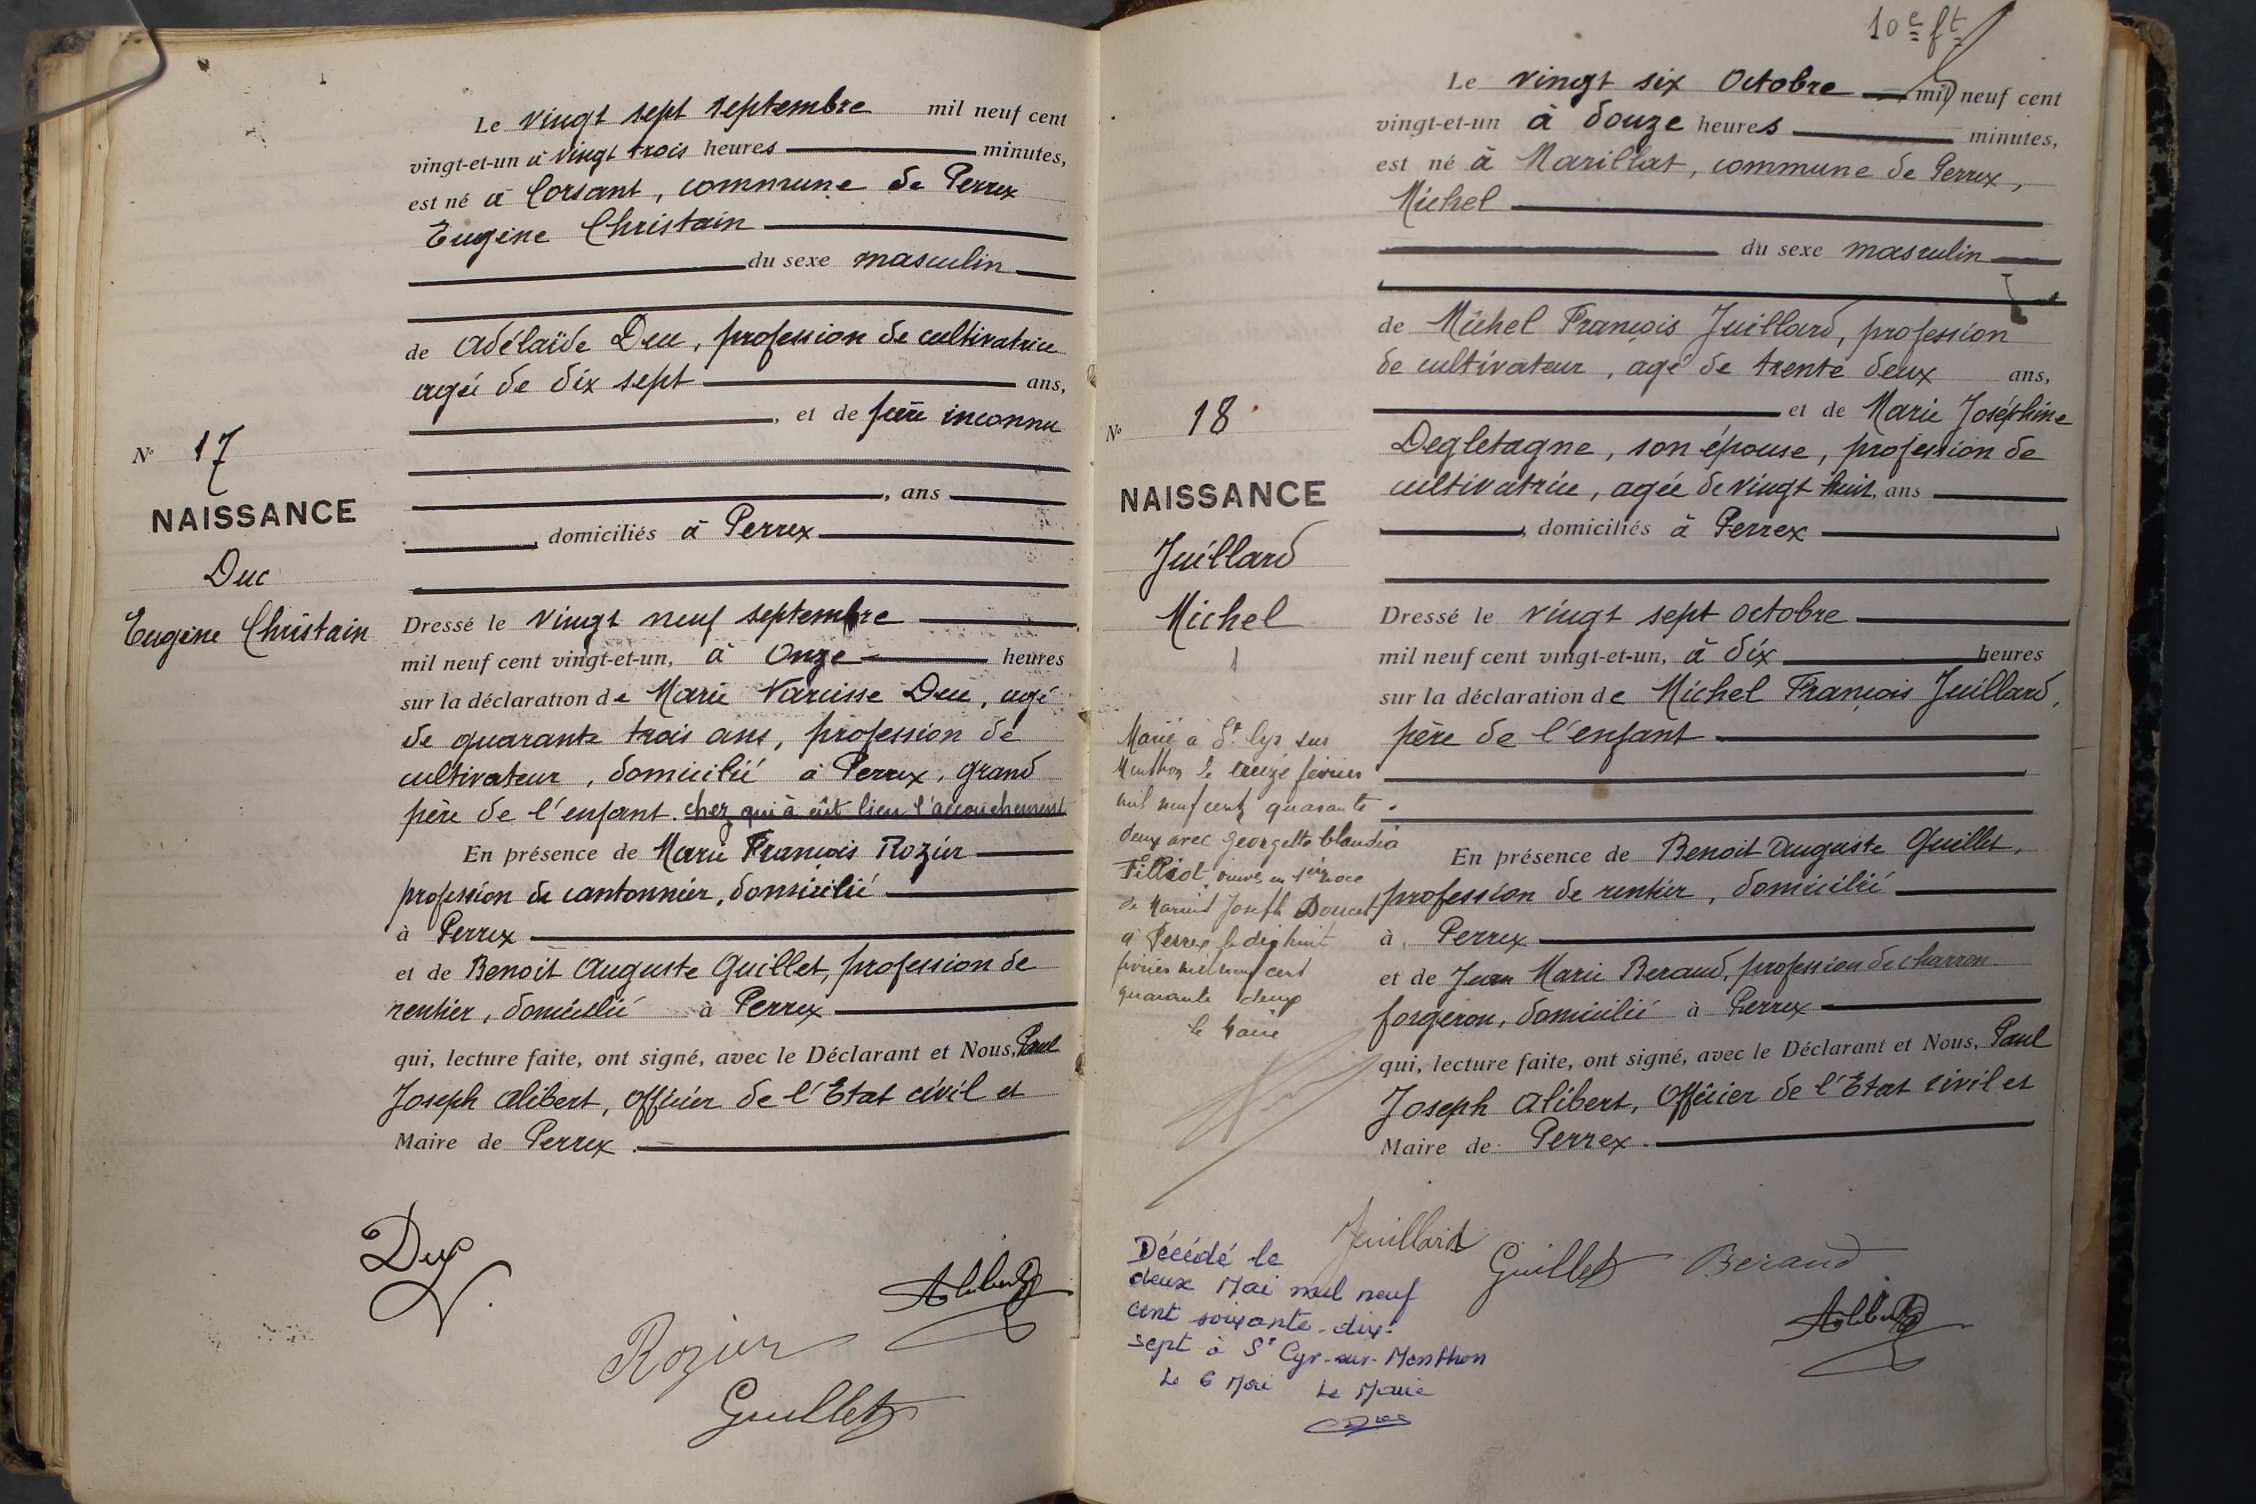 Le vingt sept septembre mil neuf cent
vingt-et-un à vingt trois heures minutes,
est né à Corsant, commune de Perrex
Eugène Christain
du sexe masculin
de Adélaïde Duc, profession de cultivatrice
agée de dix sept ans,
, et de père inconnu
, ans
, domiciliés à Perrex
N° 17
NAISSANCE
Duc
Eugène Christain
Dressé le vingt neuf septembre
mil neuf cent vingt-et-un, à onze heures
sur la déclaration de Marie Narcisse Duc, agé
de quarante trois ans, profession de
cultivateur, domicilié à Perrex, grand
père de l'enfant. chez qui à eût lieu l'accouchement
En présence de Marie François Rozier
profession de cantonnier, domicilié
à Perrex
et de Benoit Auguste Guillet, profession de
rentier, domicilié à Perrex
qui, lecture faite, ont signé, avec le Déclarant et Nous, Paul
Joseph Alibert, Officier de l'Etat civil et
Maire de Perrex.
Duc
Alibert
Rozier
Guillet
10e ft
Le vingt six Octobre mil neuf cent
vingt-et-un à douze heures minutes,
est né à Marillat, commune de Perrex,
Michel
du sexe masculin
de Michel François Juillard, profession
de cultivateur, agé de trente deux ans,
et de Marie Joséphine
Degletagne, son épouse, profession de
cultivatrice, agée de vingt huit, ans
, domiciliés à Perrex
N° 18
NAISSANCE
Juillard
Michel
Dressé le vingt sept octobre
mil neuf cent vingt-et-un, à dix heures
sur la déclaration de Michel François Juillard,
père de l'enfant
En présence de Benoit Auguste Guillet,
profession de rentier, domicilié
à Perrex
et de Jean Marie Beraud, profession de charron
forgeron, domicilié à Perrex
qui, lecture faite, ont signé, avec le Déclarant et Nous, Paul
Joseph Alibert, Officier de l'Etat civil et
Maire de Perrex.
Marié à St Cyr sur
Menthon le treize février
mil neuf cent quarante
deux avec Georgette Claudia
Filliot veuve en 1ère noce
de Joseph Doucet
à Perrex le dix huit
février mil neuf cent
quarante deux
le Maire
Juillard
Guillet Beraud
Alibert
Décédé le
deux Mai mil neuf
cent soixante-dix-
sept à St Cyr-sur-Menthon
Le 6 Mai Le Maire